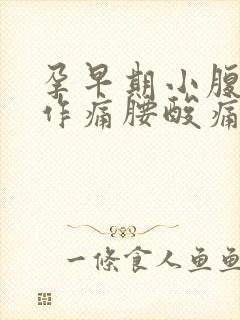 孕早期小腹
作痛腰酸痛
一條食人鱼鱼